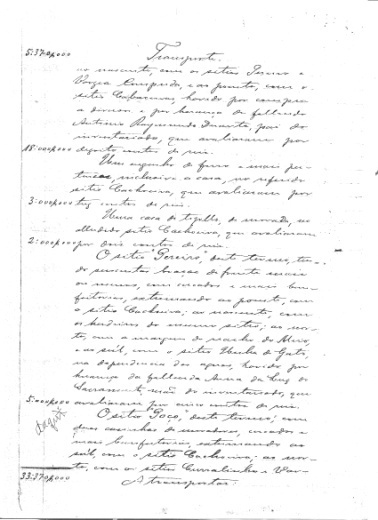 Transporte
5:370,000
ao nascente, com os sitios Pereiro e
Varzea Comprida, e ao poente, com o
sitio havido por compra
a diversos e por herança do fallecido
Antonio Raymundo Duarte, pai do
inventariado, que avaliaram por
18:000,000 dezoito contos de reis.
Um engenho de ferro e mais per
tences, inclusive a casa, no referido
sitio Cachoeira, que avaliaram por
3:000,000 tres contos de reis.
Uma casa de tijollo, de morada, no
alludido sitio Cachoeira, que avaliaram
2:000,000 por dois contos de reis.
O sitio "Pereiro", deste termo, ten
do braças de frente mais
ou menos, com cercados e mais bem
feitorias, extremando ao poente, com
o sitio Cachoeira; ao nascente, com
os herdeiros do mesmo sitio; ao nor
te, com a margem do riacho do
e ao sul, com o sitio do Gato,
na dependencia das aguas, havido por
herança da fallecida Anna da Luz do
Sacramento mãe do inventariado, que
5:000,000 avaliaram por cinco contos de reis.
O sitio "Poço", deste termo, com
duas casinhas de moradores, cercados e
mais bemfeitorias, extremando ao
sul, com o sitio Cachoeira; ao nor
te, com os sitios Curralinho e Var-
33:370,000 A transportar.